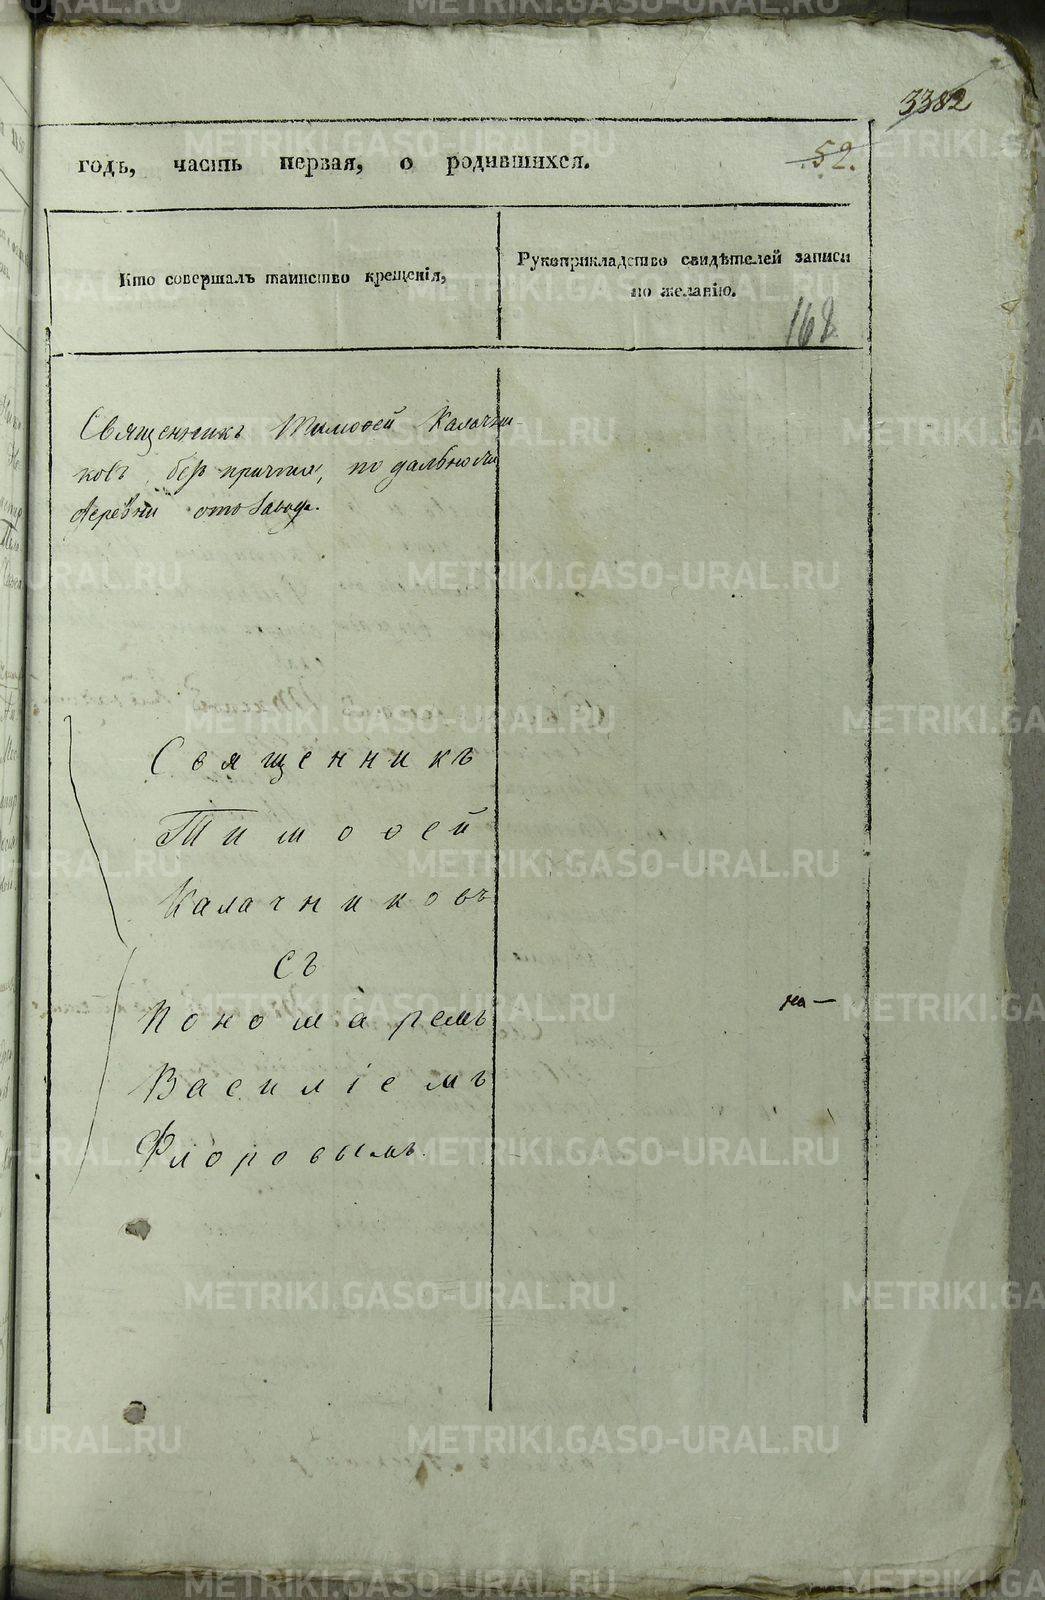 3382
годъ, часть первая, о родившихся.
52.
Кто совершалъ таинство крещенія,
Рукоприкладство свидѣтелей записи
по желанію.
168
Священникъ Тимоѳей Калачни-
ковъ безъ причта, по дальности
деревни отъ завода.
Священникъ
Тимоѳей
Калачниковъ
съ
Пономаремъ
Василіемъ
Флоровымъ.
на—
METRIKI.GASO-URAL.RU